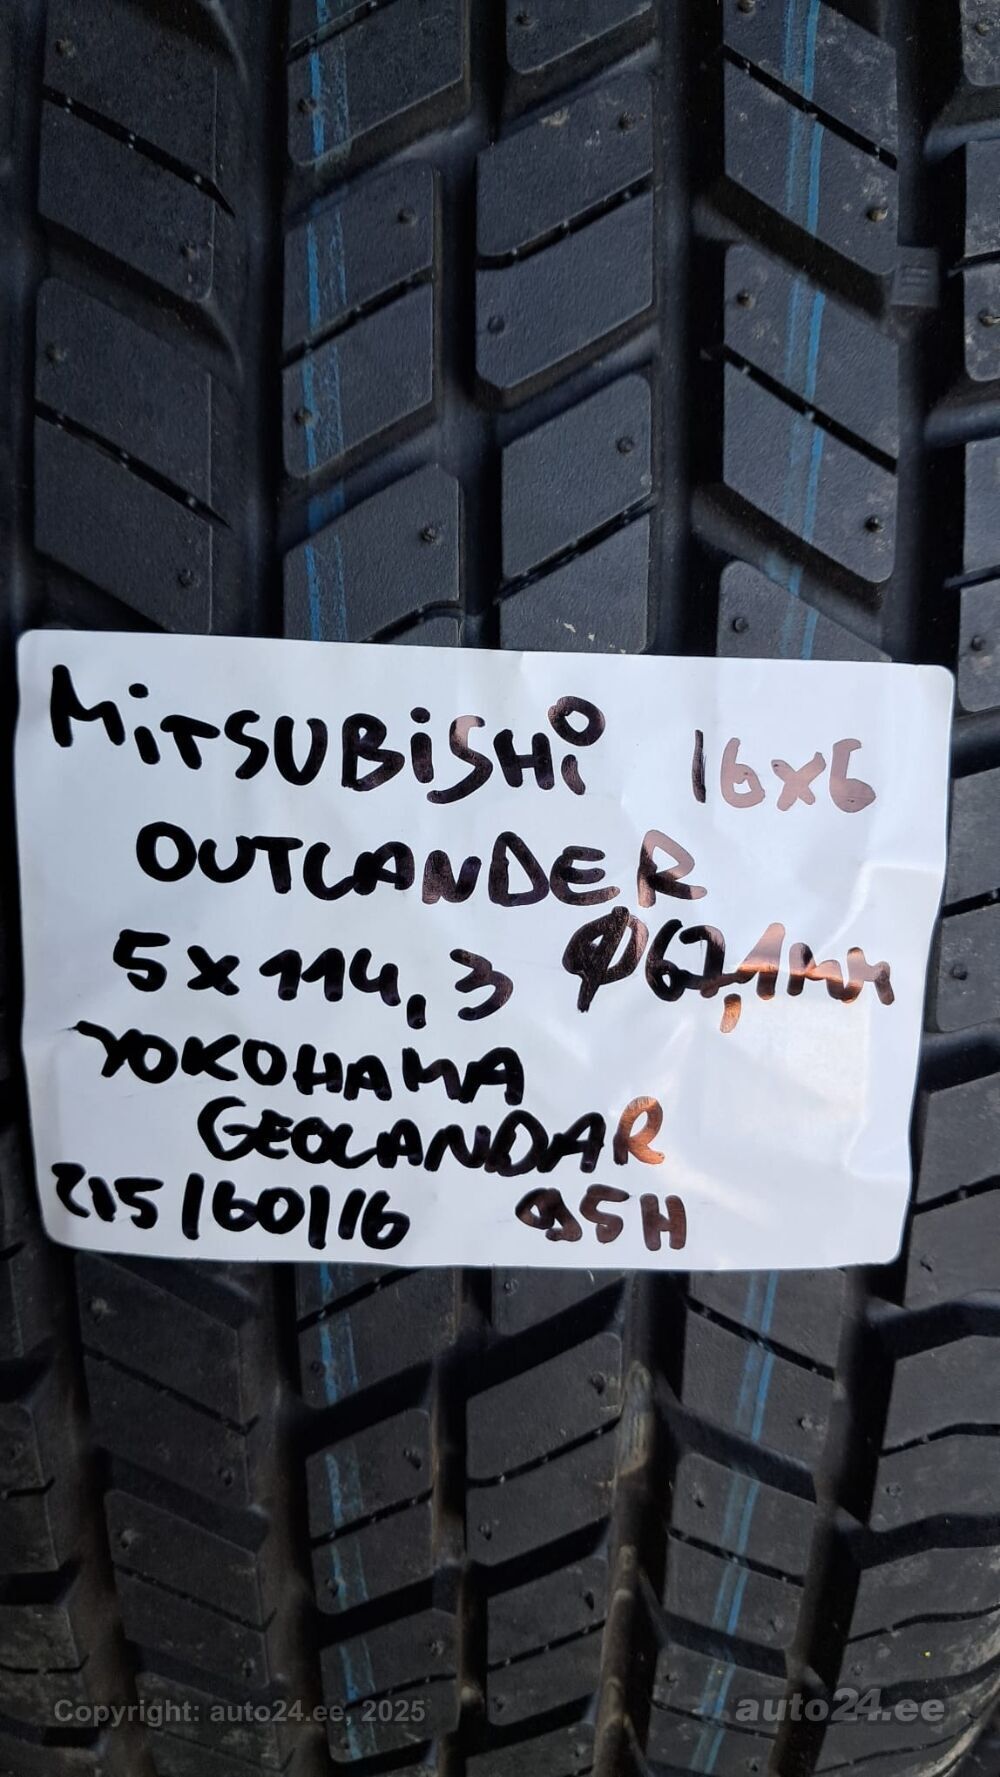 MiTSUBiSHi 16x6
OUTLANDER
5x114,3 Ø67,1mm
YOKOHAMA
GEOLANDAR
215/60/16 95H
Copyright: auto24.ee, 2025
auto24.ee